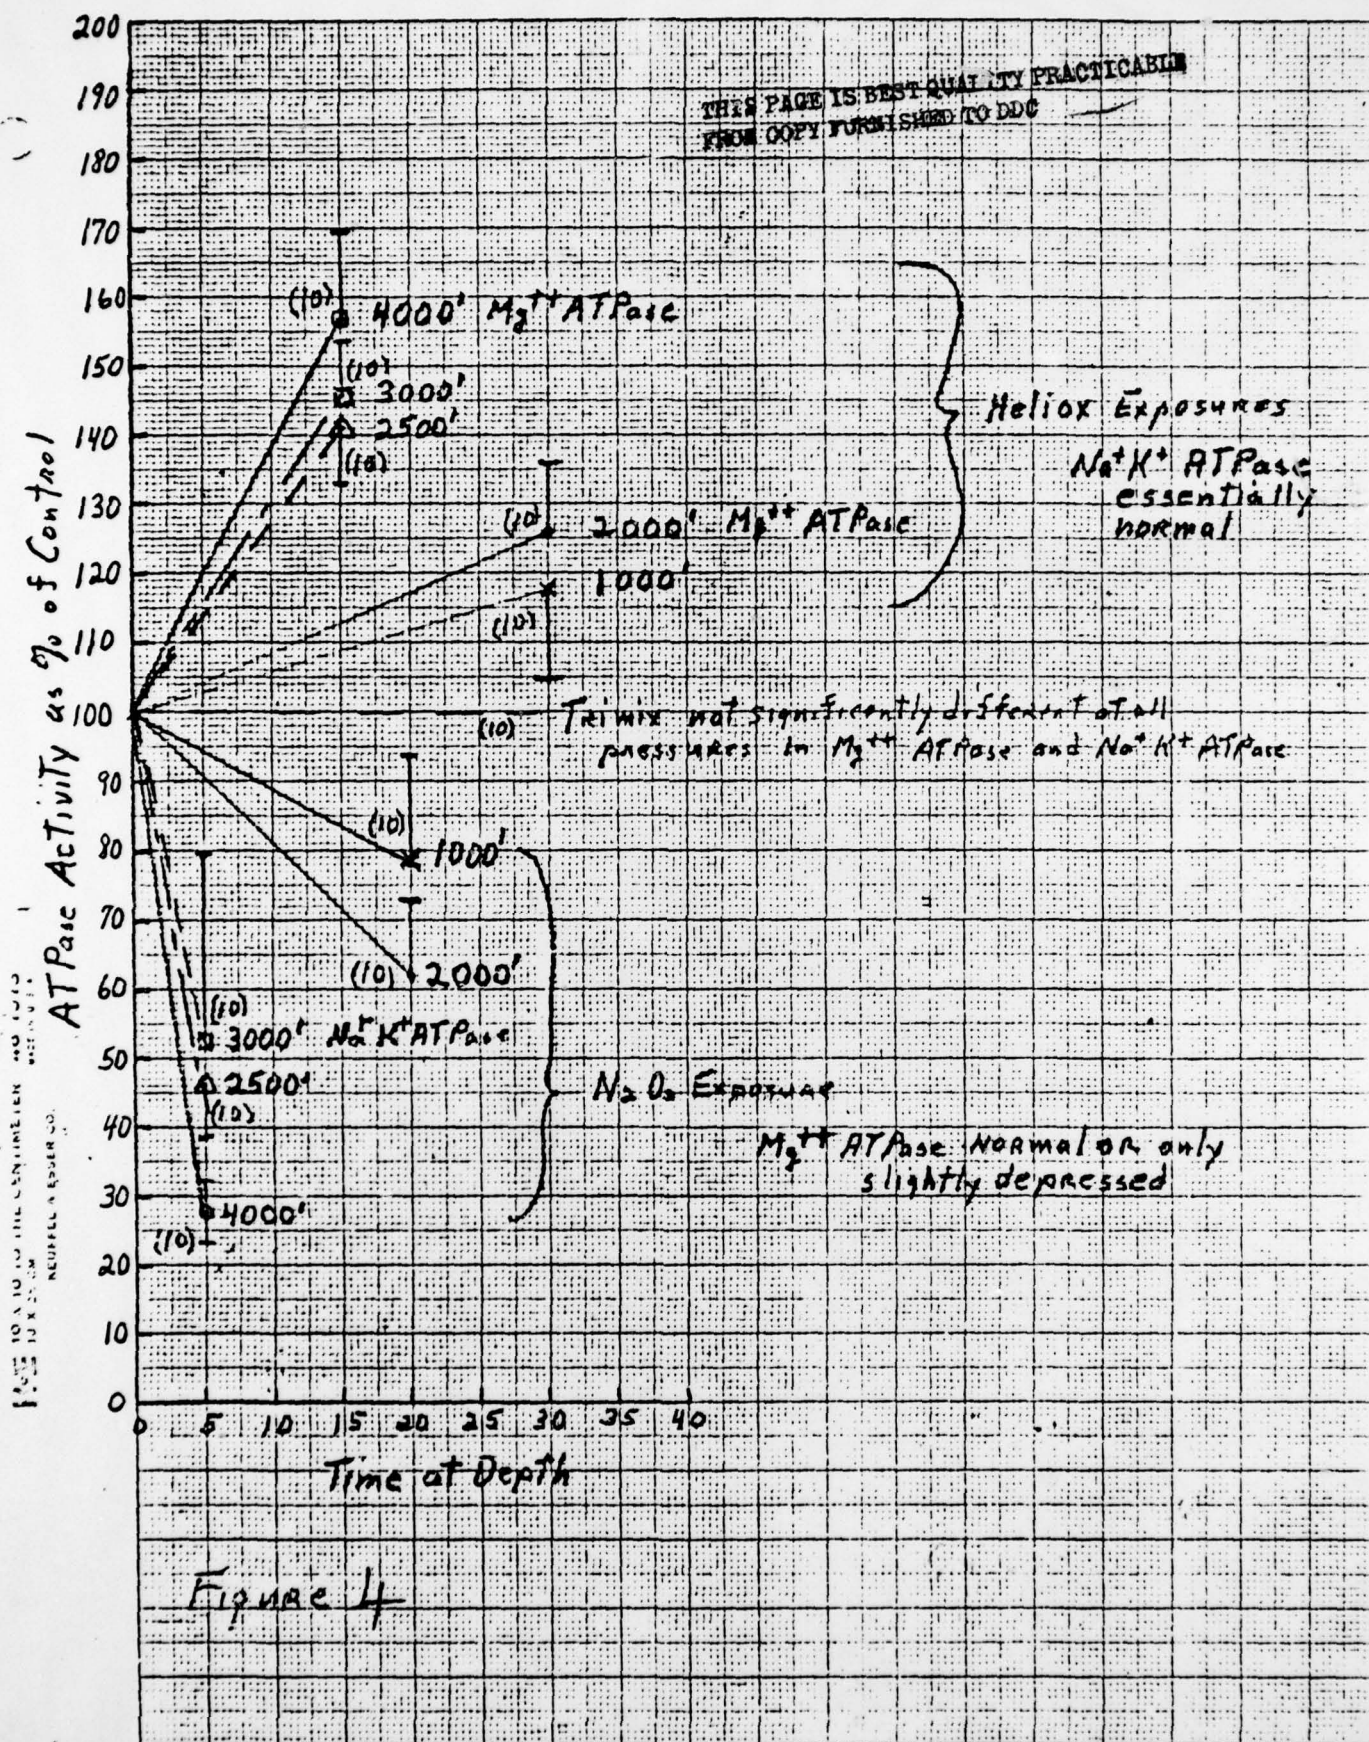 THIS PAGE IS BEST QUALITY PRACTICABLE
FROM COPY FURNISHED TO DDC
200
190
180
170
160
150
140
130
120
110
100
90
80
70
60
50
40
30
20
10
0
ATPase Activity as % of Control
(10) 4000' Mg++ ATPase
(10)
3000'
2500'
(10)
Heliox Exposures
Na+ K+ ATPase
essentially
normal
(10) 2000' Mg++ ATPase
1000'
(10)
(10) Trimix not significantly different at all
pressures in Mg++ ATPase and Na+ K+ ATPase
(10) 1000'
(10) 2000'
(10)
3000' Na+ K+ ATPase
2500'
(10)
4000'
(10)
N2 O2 Exposure
Mg++ ATPase Normal or only
slightly depressed
0 5 10 15 20 25 30 35 40
Time at Depth
Figure 4
KEUFFEL & ESSER CO.